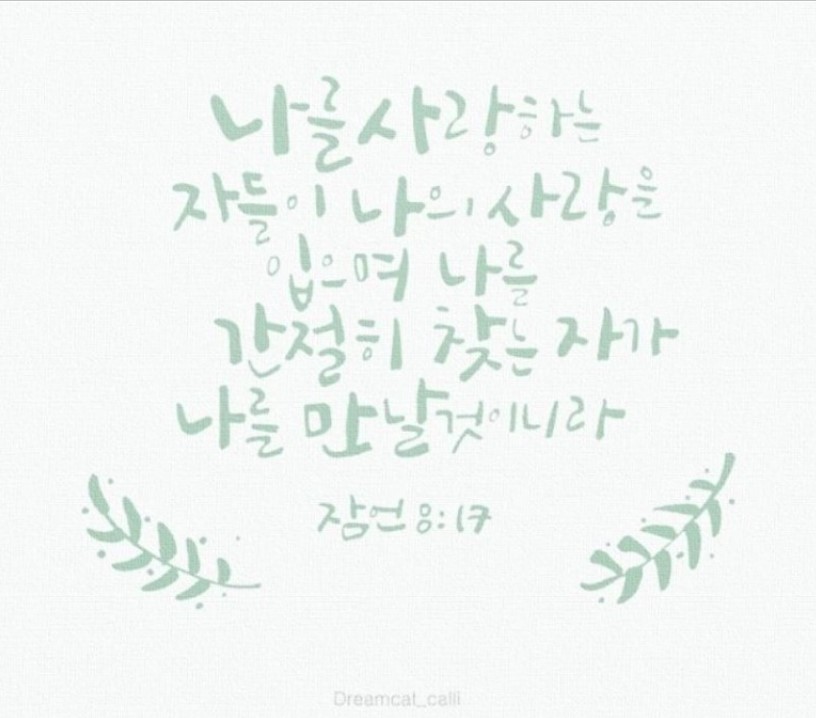 나를 사랑하는
자들이 나의 사랑을
입으며 나를
간절히 찾는 자가
나를 만날것이니라
잠언 8:17
Dreamcat_calli